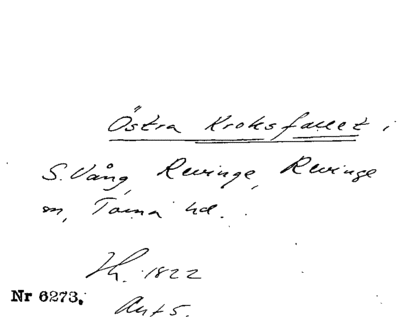 Östra Kroksfallet i
S. Vång, Revinge, Revinge
sn, Torna hd.
Sk. 1822
Nr 6273.
Ant 5.